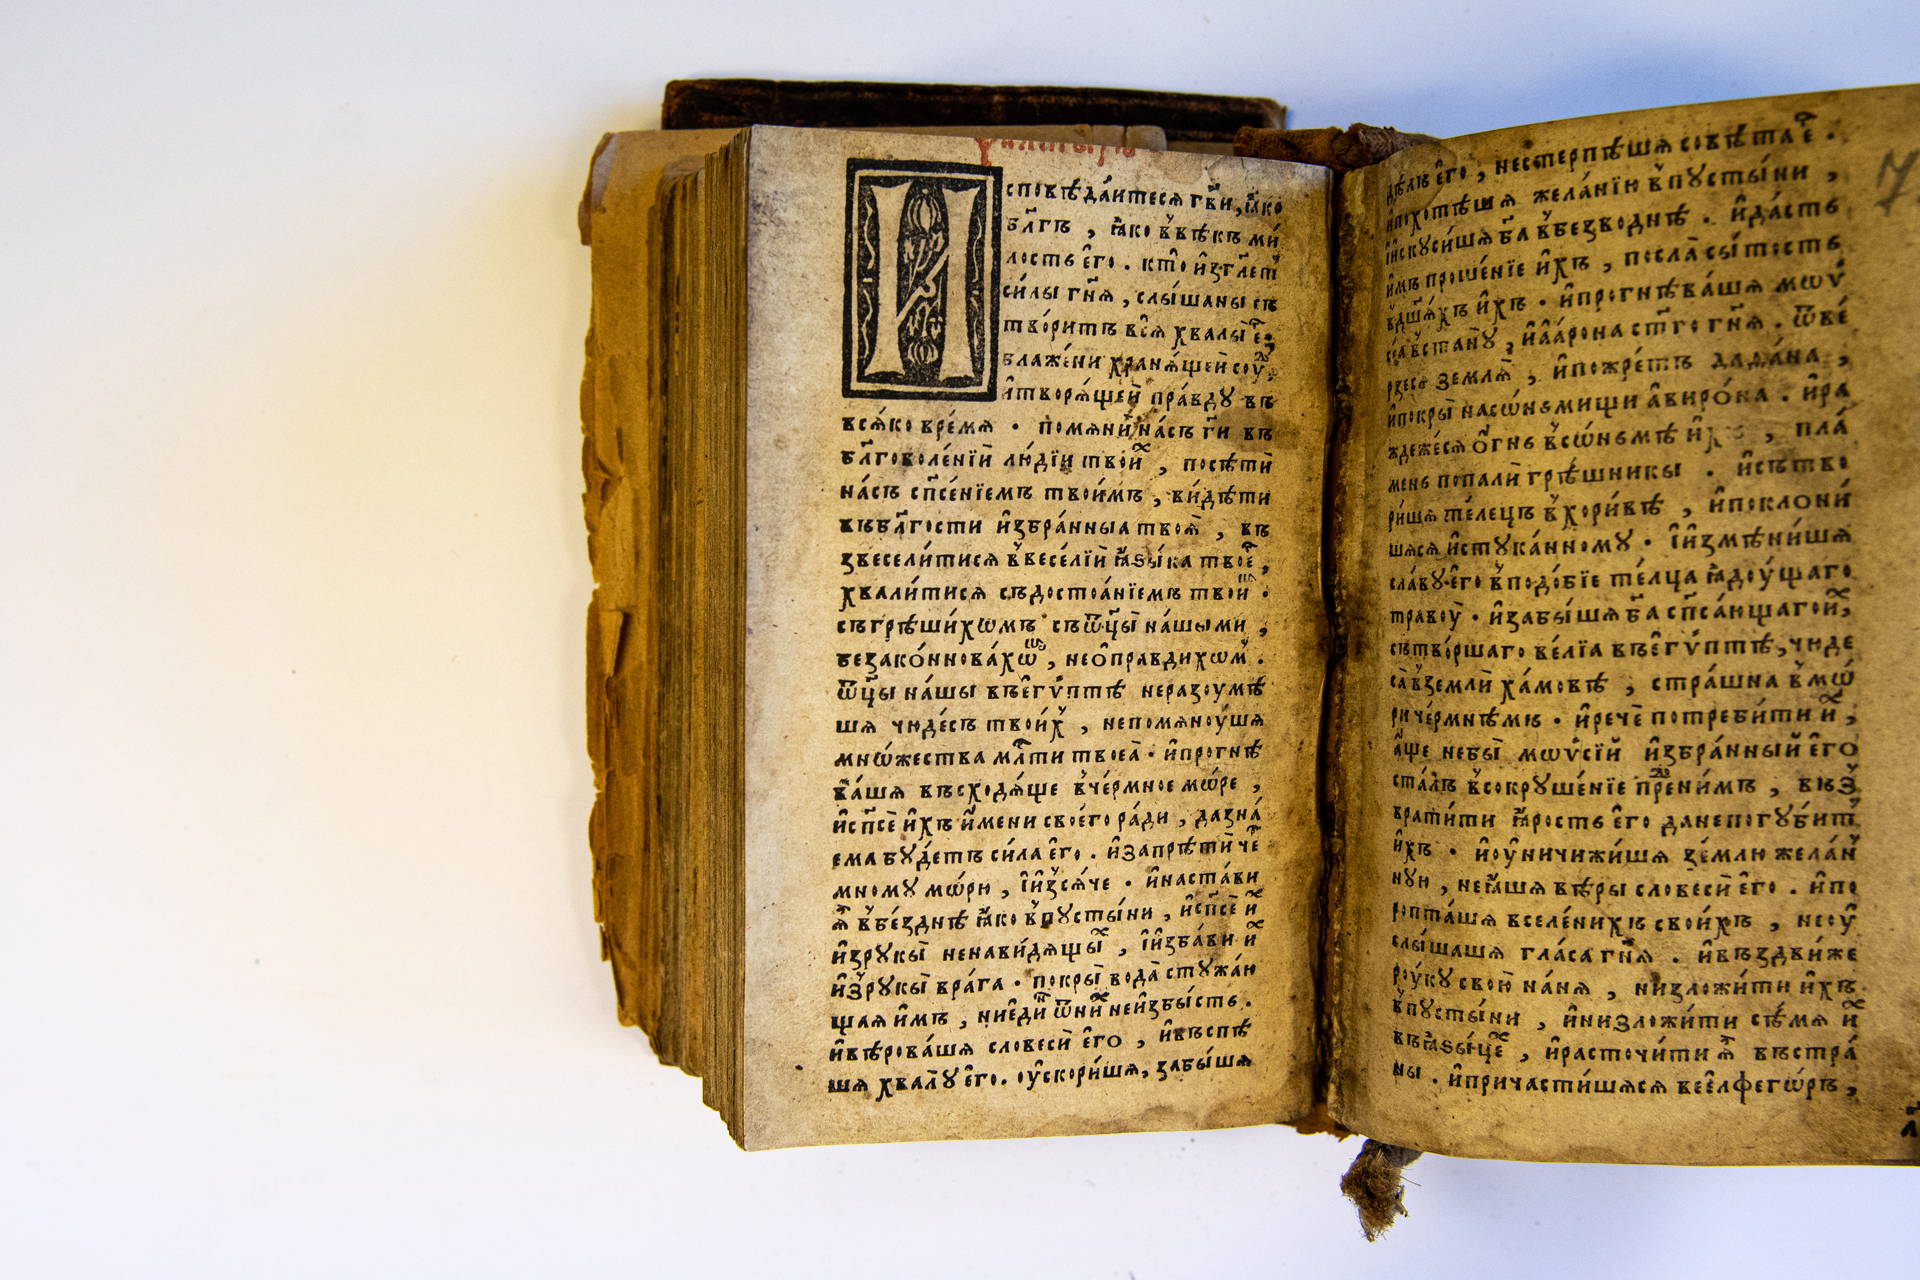 И
сповѣ́даитеся гв҃и, ꙗ҆́ко
бл҃гъ , ꙗ҆́ко в҆вѣ́къ ми́
лость є҆го . кто̀ и҆зг҃лет
си́лы гн҃ѧ , слы́шаны съ
тво́ритъ всѧ̀ хвалы̀ є҆г
блаже́ни хранѧ́щеи соу
и҆творѧ́щеи пра́вдꙋ въ
всѧ́ко вре́мѧ . помѧни́ на́съ г҃и въ
бл҃говоле́нїи лю́дїи твои́х , посѣтѝ
на́съ сп҃се́нїемъ твои́мъ , ви́дѣти
въбл҃гости и҆збра́нныа твоѧ̀ , въ
звесели́тисѧ в҆весе́лїи ꙗ҆ѕы́ка твоего ,
хвали́тисѧ съдостоа́нїемъ твои .
съгрѣши́хѡмъ съѿц҃ы̀ на́шыми ,
беззако́нновахѡ , неѻ҆пра́вдихѡм .
ѿц҃ы на́шы въє҆гѵ́птѣ неразоумѣ́
шѧ чюде́съ твои́х , непомѧноу́шѧ
мнѡ́жества мл҃ти твоеѧ̀ . и҆прогнѣ́
ва́шѧ въсходѧ́ще в҆че́рмное мѡ́ре ,
и҆сп҃се и҆́хъ и҆́мени своего̀ ра́ди , дазна́
ема бꙋ́детъ си́ла є҆го̀ . и҆запрѣтѝ че
мномꙋ мѡ́рю , і҆и҆зсѧ́че . и҆наста́ви
ѧ҆̀ в҆бе́зднѣ ꙗ҆́ко в҆пꙋсты́ни , и҆сп҃се и҆х
и҆зрꙋкы̀ ненави́дѧщы́х , і҆и҆зба́ви и҆х
и҆зрꙋкы̀ врага̀ . покры̀ вода̀ стꙋжа́ю
щаѧ и҆̀мъ , ниеди́н ѿни́х неи҆збы́сть .
и҆вѣ́рова́шѧ словесѝ є҆го̀ , и҆въспѣ́
шѧ хвалꙋ̀ є҆го̀ . оу҆скори́шѧ, забы́шѧ
дѣ́лъ є҆го̀ , нестерпѣ́шѧ совѣ́та є҆г .
и҆похотѣ́шѧ жела́нїю в҆пꙋсты́ни ,
и҆и҆скꙋси́шѧ б҃а в҆безво́днѣ . и҆да́сть
и҆̀мъ проше́нїе и҆́хъ , посла̀ сы́тость
в҆дш҃ѧ́хъ и҆́хъ . и҆прогнѣ́ва́шѧ мѡѵ
сеа в҆станꙋ̀ , и҆а҆аро́на ст҃го гн҃ѧ . ѿве́
рзесѧ землѧ̀ , и҆пожре́тъ даѳа́на ,
и҆покры̀ насѡ́ньмищи а҆виро́на . и҆ра
ждеже́сѧ ѻ҆́гнь в҆сѡ́ньмѣ , пла́
мень попалѝ грѣ́шникы . и҆съ́тво
ри́шѧ те́лецъ в҆хори́вѣ , и҆поклони́
шѧсѧ и҆стꙋка́нномꙋ . і҆и҆змѣни́шѧ
сла́вꙋ є҆го̀ в҆подо́бїе те́лца ꙗ҆доу́щаго
травоу̀ . и҆забы́шѧ б҃а сп҃са́ющаго и҆х,
сътво́ршаго ве́лїа въє҆гѵ́птѣ, чюде
са̀ в҆землѝ ха́мовѣ , стра́шна в҆мѡ
ри че́рмнѣмъ . и҆речѐ потреби́ти и҆х ,
а҆́ще не бы̀ мѡѵсі́й и҆збра́нный є҆го
ста́лъ в҆сокрꙋше́нїе пред ни́мъ , въз
врати́ти ꙗ҆́рость є҆го̀ данепогꙋби́т
и҆́хъ . и҆оу҆ничижи́шѧ зе́млю жела́н
нꙋю , неꙗ҆́шѧ вѣ́ры словесѝ є҆го̀ . и҆по
ропта́шѧ вселе́нихъ свои́хъ , неоу
слы́шашѧ гла́са гн҃ѧ . и҆въздви́же
роу́кꙋ свою̀ на́нѧ , низложи́ти и҆́хъ
в҆пꙋсты́ни , и҆низложи́ти сѣ́мѧ и҆х
въꙗ҆ѕы́цех , и҆расточи́ти ѧ҆̀ въстра́
ны . и҆причасти́шѧсѧ веелфегѡ́рꙋ ,